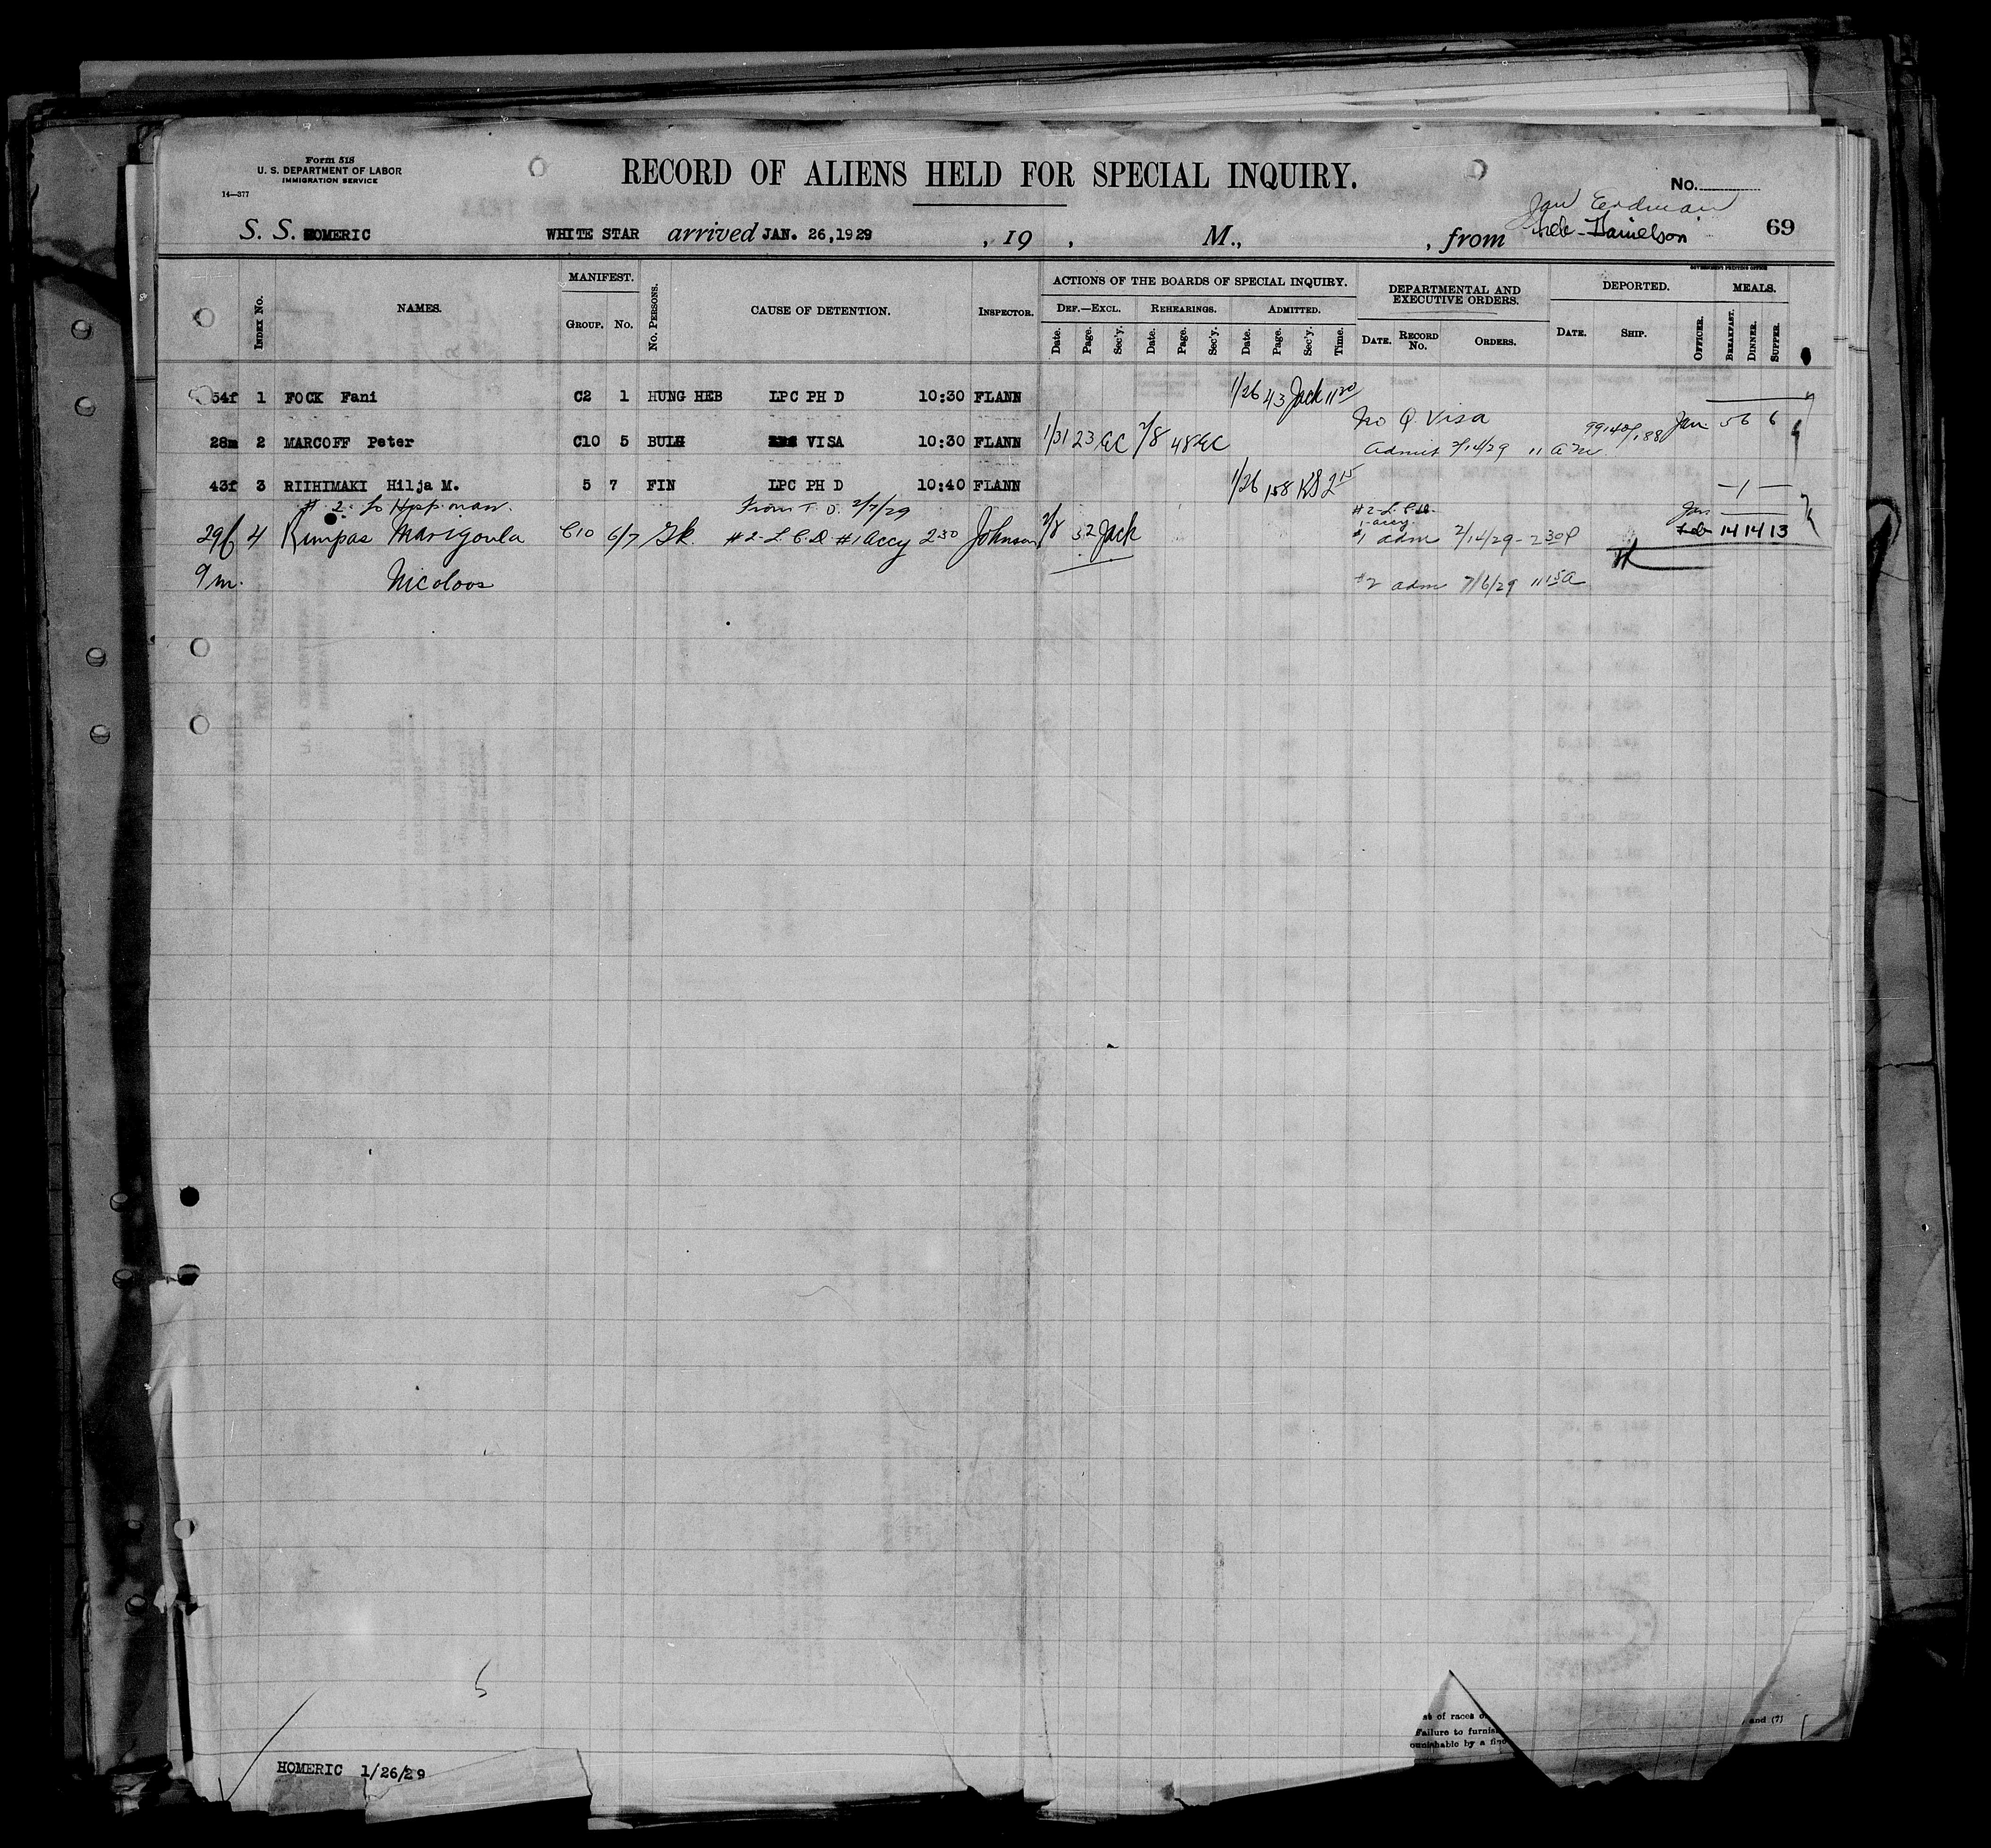 Form 518
U. S. DEPARTMENT OF LABOR
IMMIGRATION SERVICE
14—377
RECORD OF ALIENS HELD FOR SPECIAL INQUIRY.
No.
Jan Erdman
Feb - Danielson
69
S. S. HOMERIC WHITE STAR arrived JAN. 26,1929 , 19 , M., , from
GOVERNMENT PRINTING OFFICE
INDEX No. NAMES. MANIFEST. GROUP. No. No. PERSONS. CAUSE OF DETENTION. INSPECTOR.
ACTIONS OF THE BOARDS OF SPECIAL INQUIRY. DEF.—EXCL. REHEARINGS. ADMITTED.
Date. Page. Sec'y. Date. Page. Sec'y. Date. Page. Sec'y. Time.
DEPARTMENTAL AND EXECUTIVE ORDERS. DATE. RECORD No. ORDERS.
DEPORTED. DATE. SHIP. OFFICER. MEALS. BREAKFAST. DINNER. SUPPER.
54f 1 FOCK Fani C2 1 HUNG HEB LPC PH D 10:30 FLANN 1/26 43 Jack 11 20
No Q. Visa
28m 2 MARCOFF Peter C10 5 BULH VISA 10:30 FLANN 1/31 23 GC 2/8 48 GC Admit 2/14/29 11 am 99140/188 Jan 5 6 6
43f 3 RIIHIMAKI Hilja M. 5 7 FIN LPC PH D 10:40 FLANN 1/26 158 KS 2 15 — 1 —
# 2 to Hosp. From T. D. 2/7/29 #2-L.P.D. Jan
#1 accy.
29f 4 Kimpas Marigoula C10 6/7 Gk. #2-L.C.D. #1 accy 2 30 Johnson 2/8 32 Jack #1 adm 2/14/29 - 2 30 P Feb 14 14 13
9m. Nicoloos #2 adm 7/6/29 11 15 a
HOMERIC 1/26/29
of races
Failure to furnis
punishable by a fine
and (7)